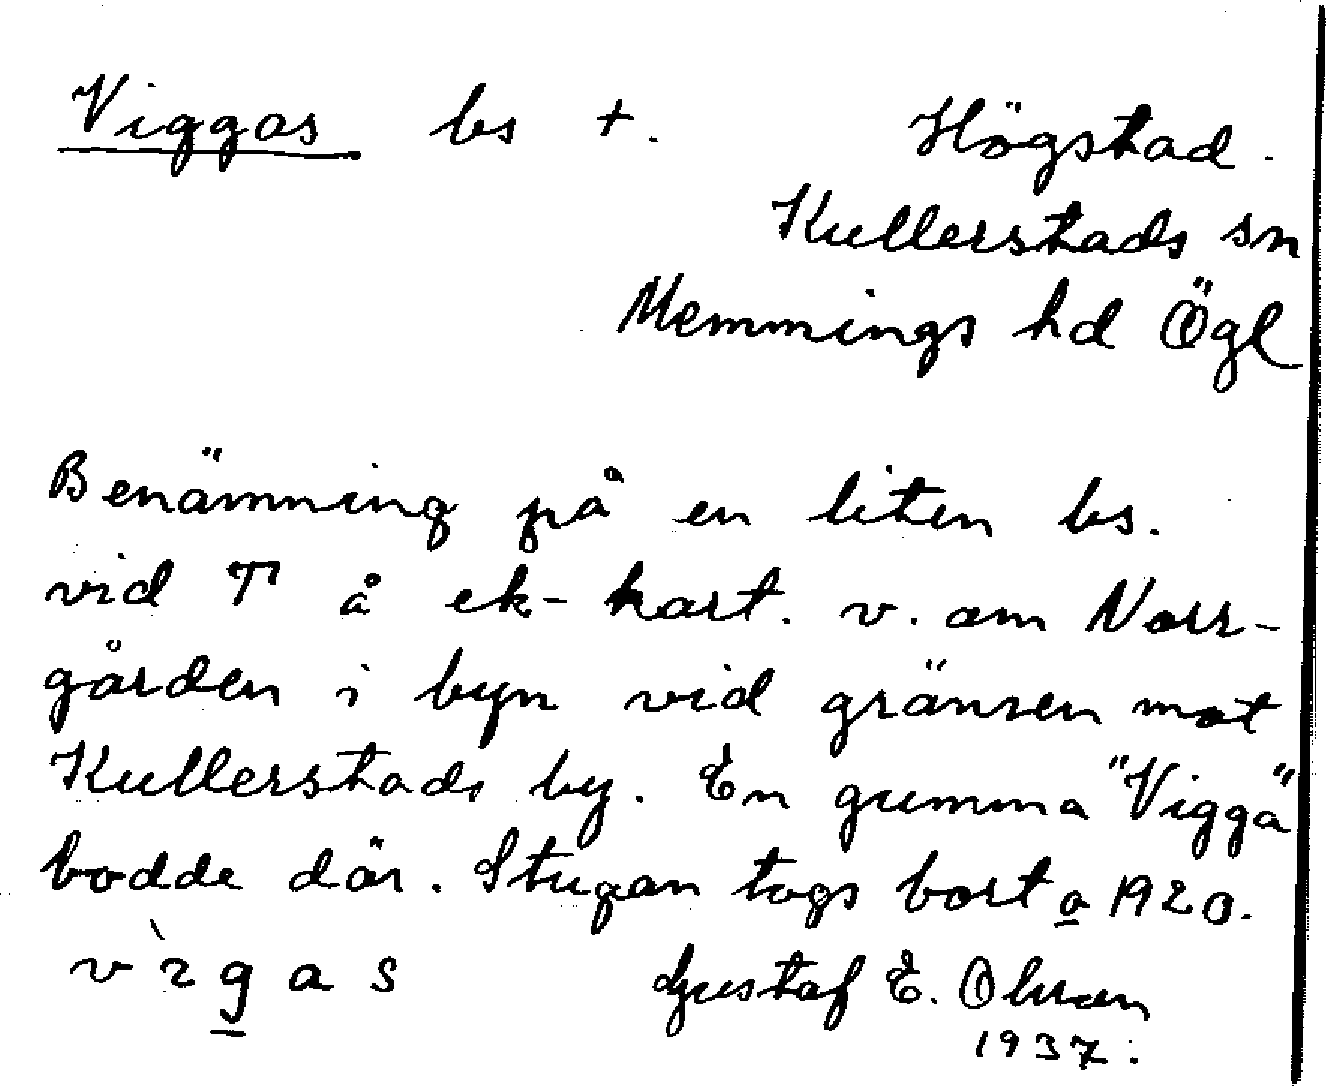 Viggas bs +. Högstad.
Kullerstads sn
Memmings hd Ögl
Benämning på en liten bs.
vid T å ek-kart. v. om Norr-
gården i byn vid gränsen mot
Kullerstads by. En gumma "Vigga"
bodde där. Stugan togs bort o 1920.
Gustaf E. Olsson
1937.